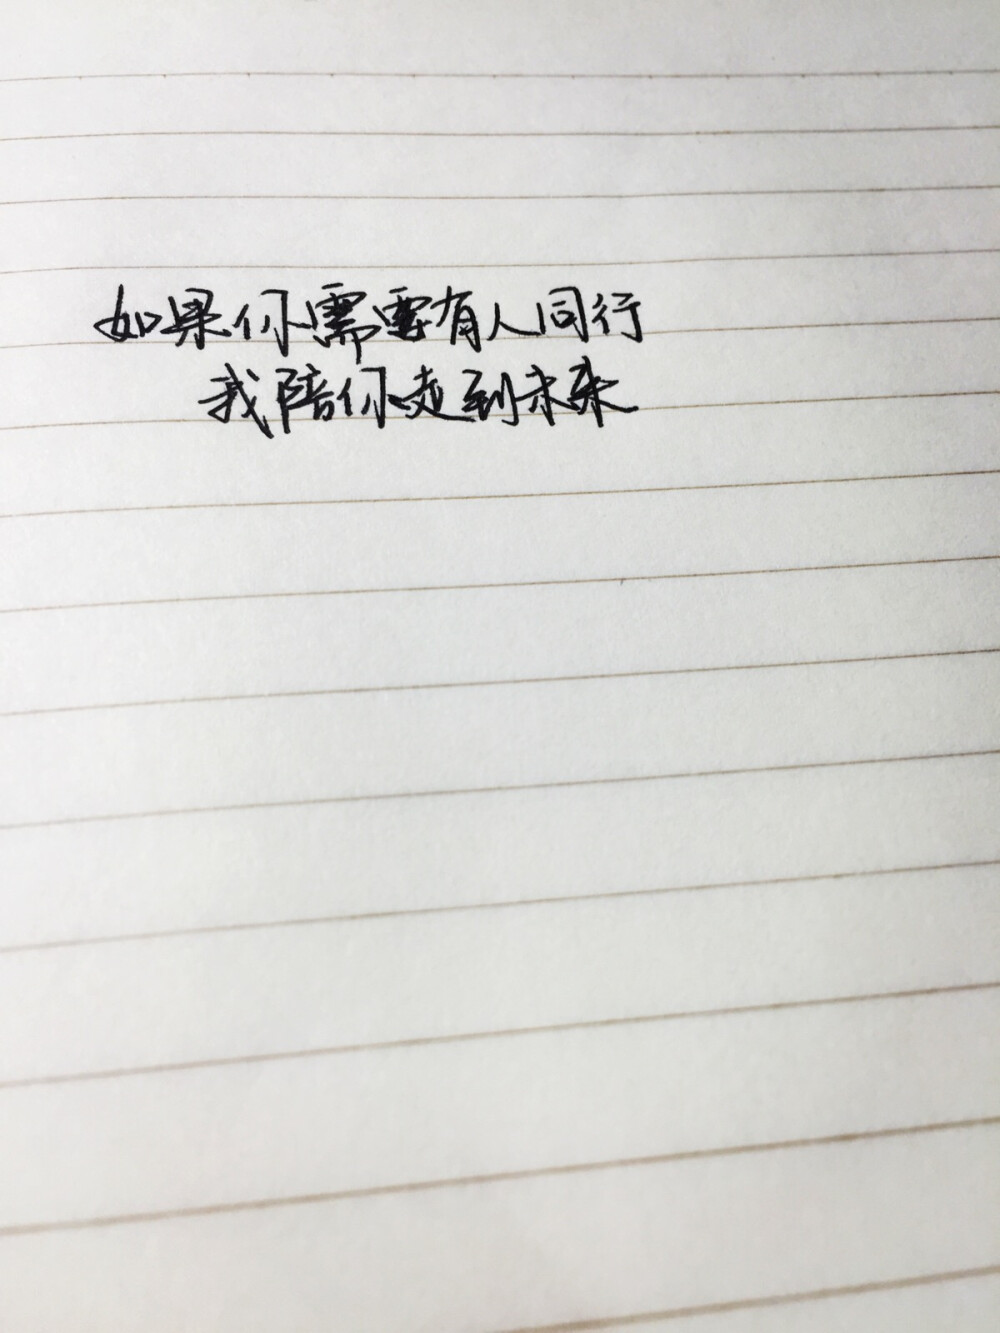 如果你需要有人同行
我陪你走到未来